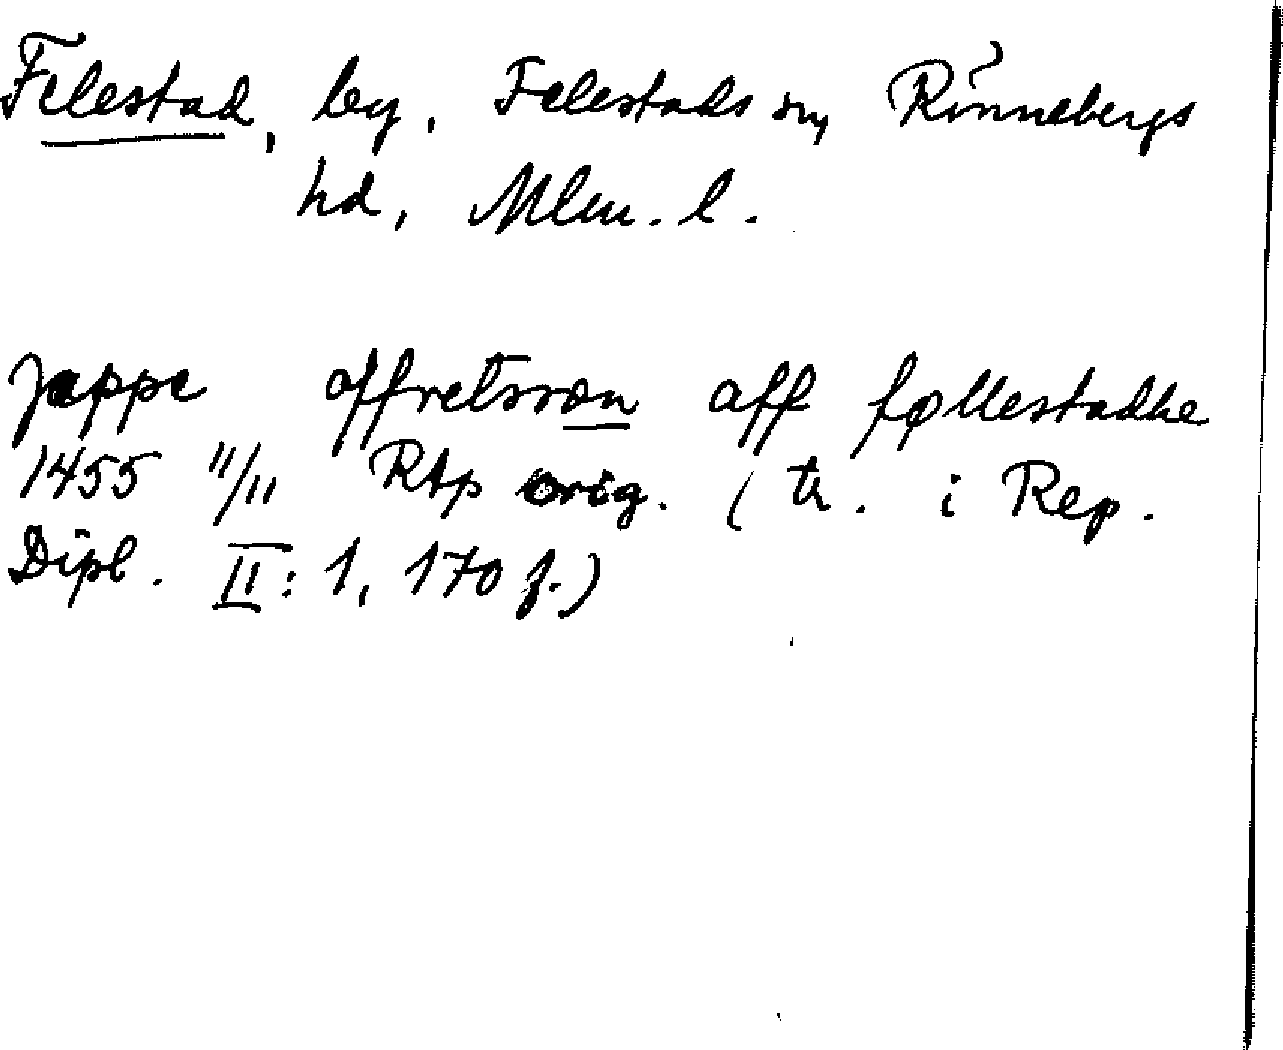 Felestad, by, Felestads sn, Rönnebergs
hd, Mlm. l.
Jeppe offretsson aff føllestadhe
1455 11/11 RAp orig. (tr. i Rep.
Dipl. II: 1, 170 f.)